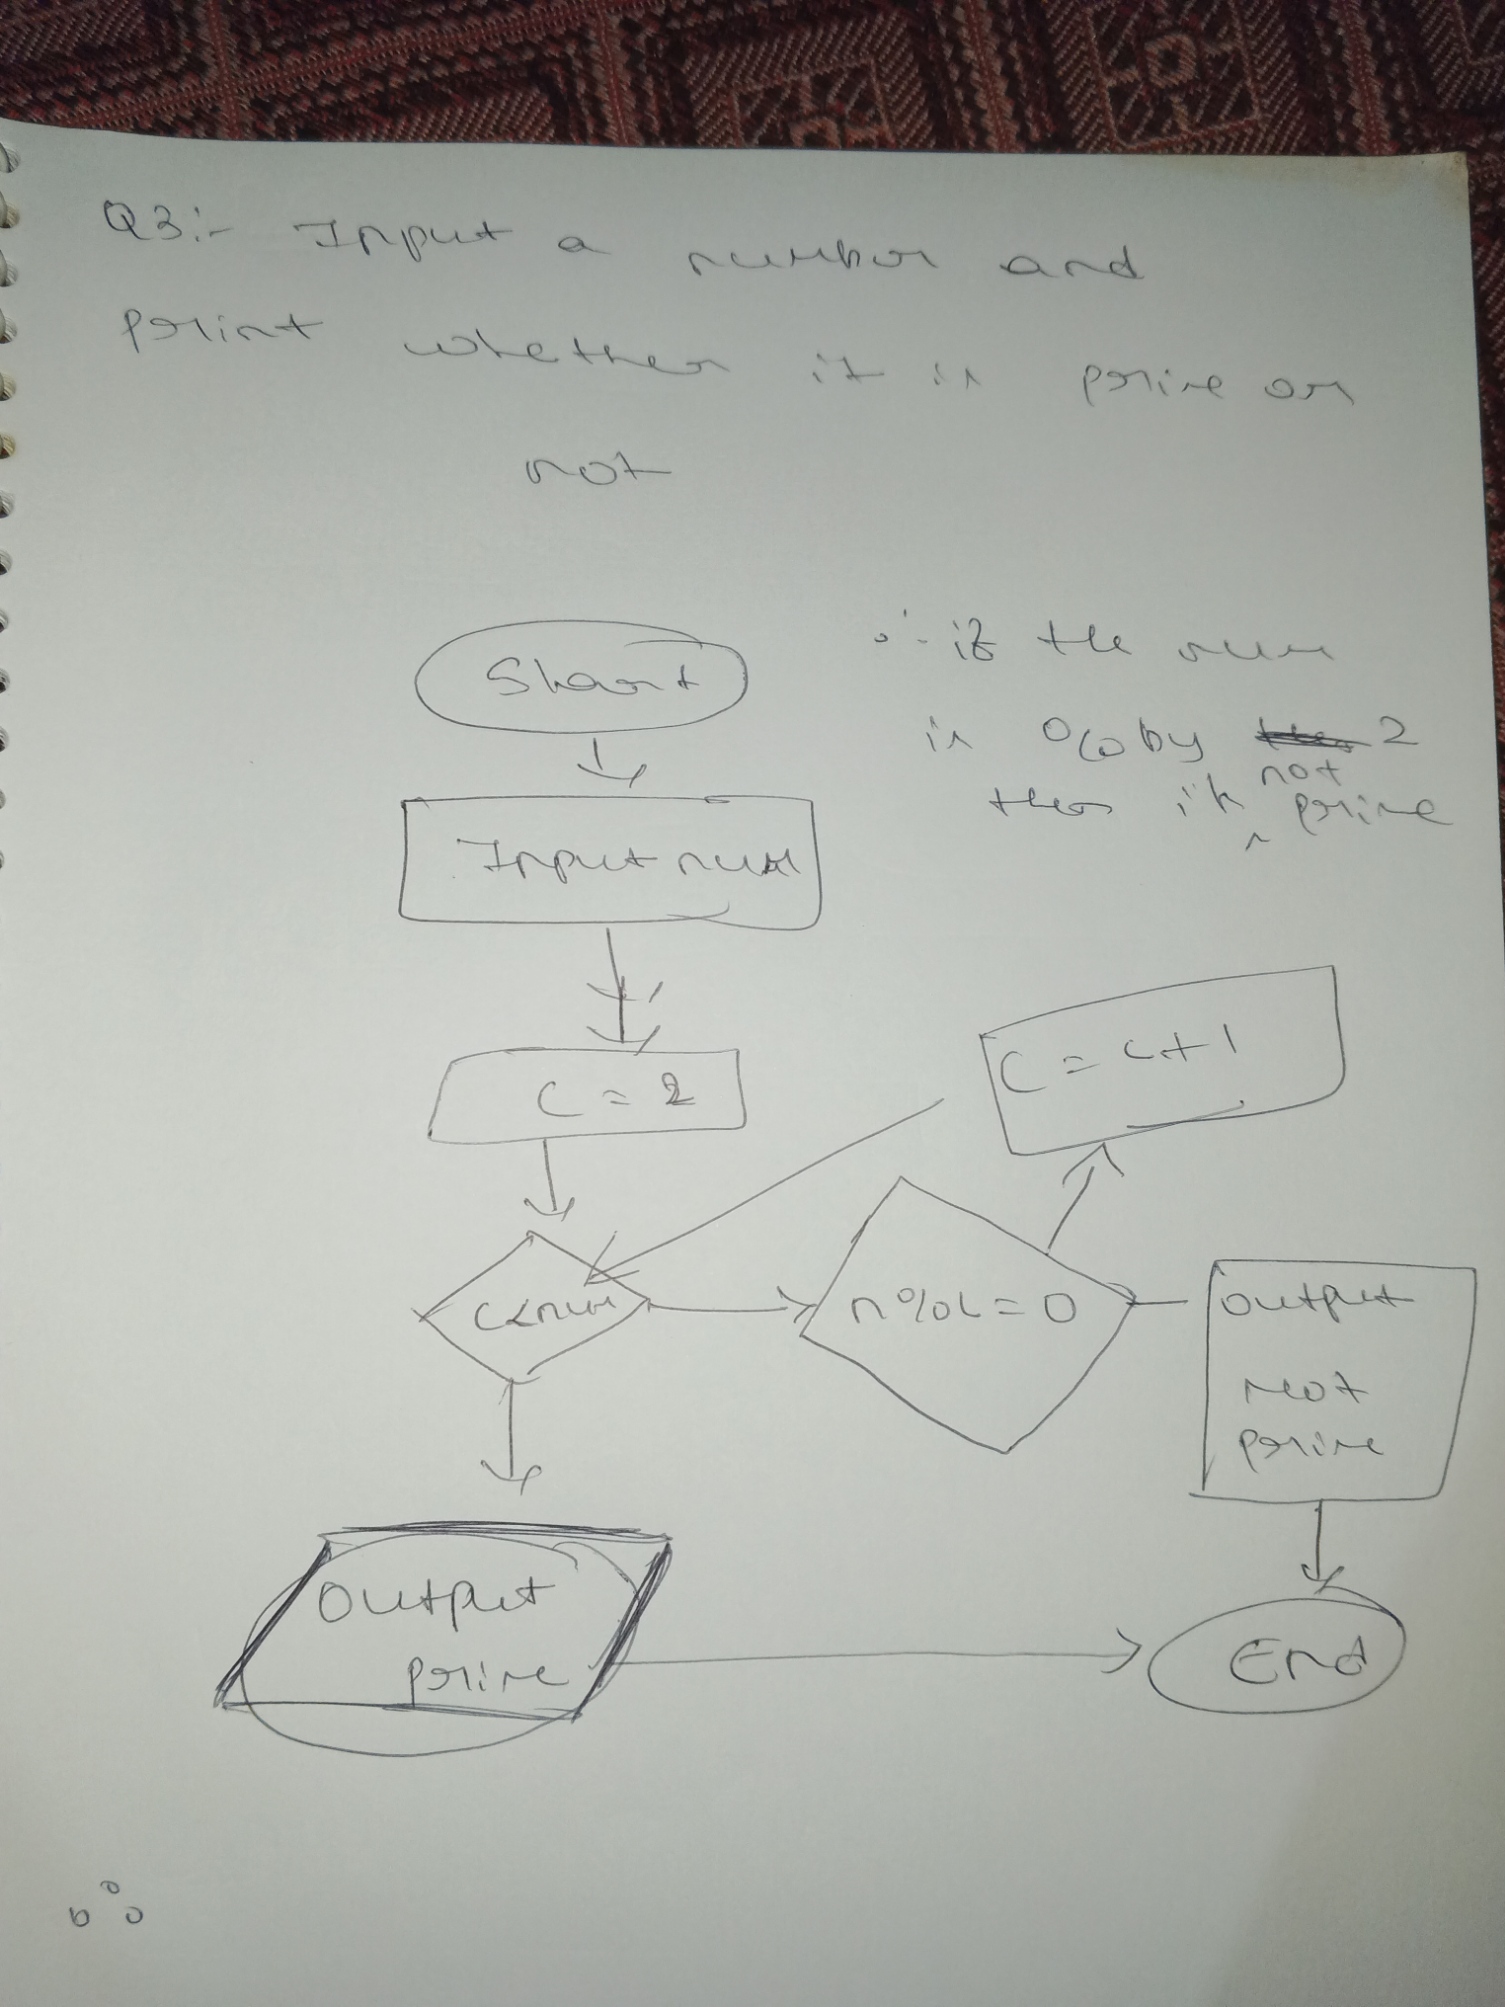 Q3:- Input a number and
print whether it is prime or
not
Start
∴ if the num
is % by 2
then its not prime
Input num
C = 2
C = c+1
C<num
n%c=0
Output
Not
prime
Output
prime
End